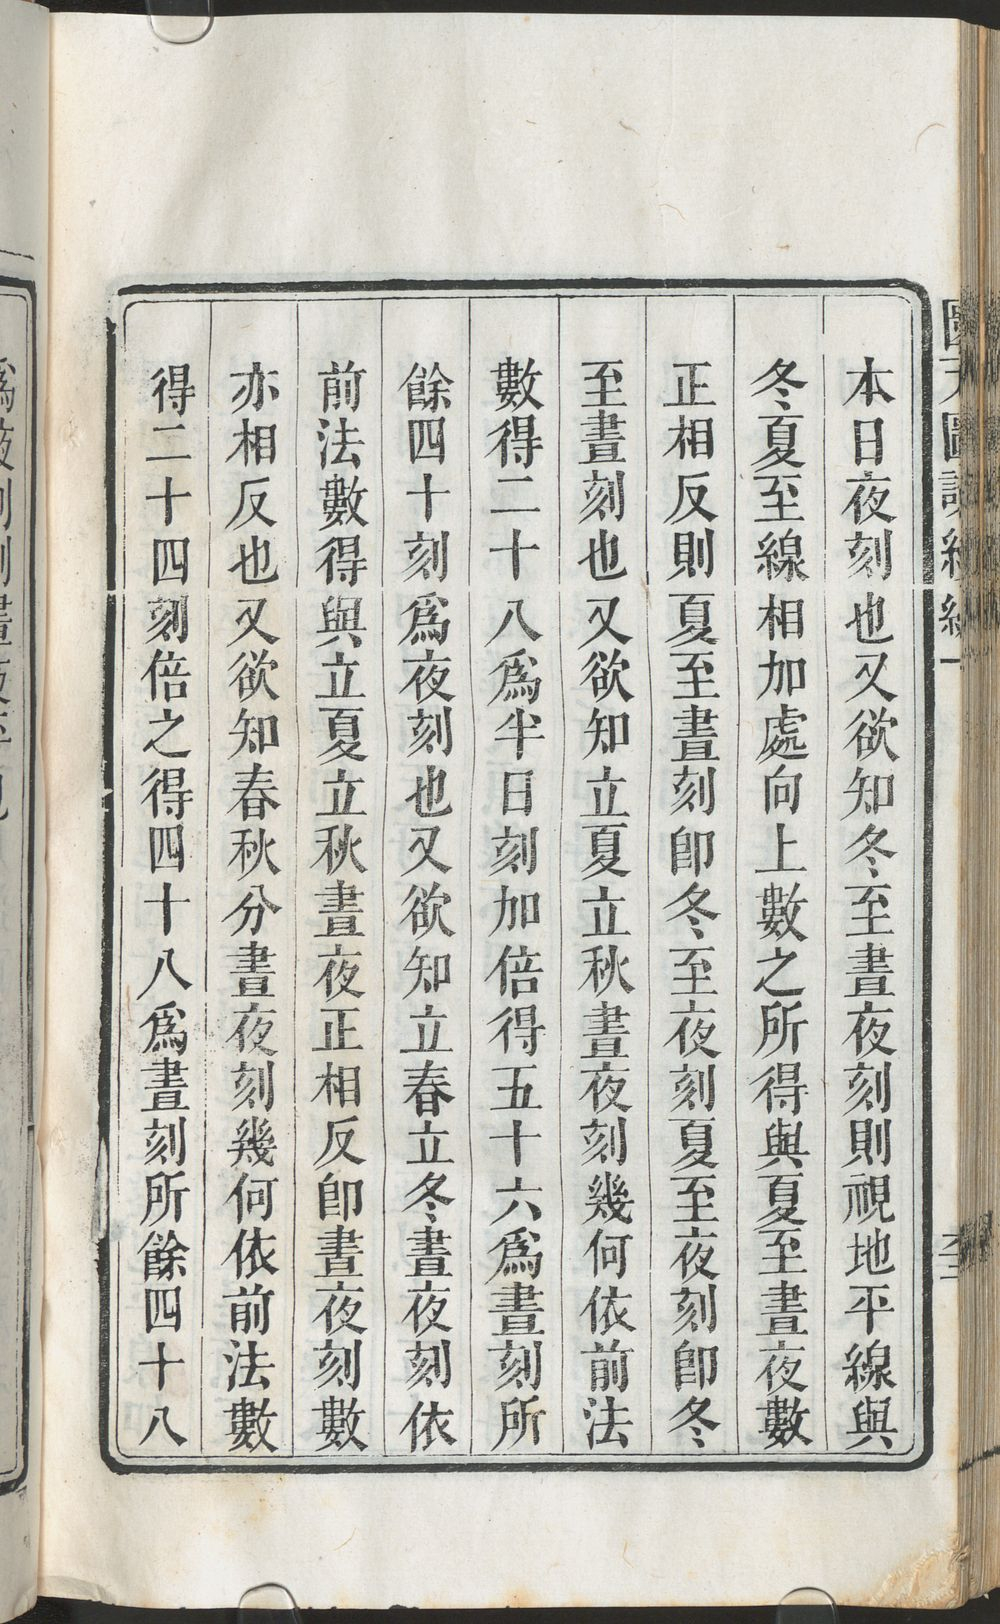 本日夜刻也又欲知冬至晝夜刻則視地平線與
冬夏至線相加處向上數之所得與夏至晝夜數
正相反則夏至晝刻卽冬至夜刻夏至夜刻卽冬
至晝刻也又欲知立夏立秋晝夜刻幾何依前法
數得二十八爲半日刻加倍得五十六爲晝刻所
餘四十刻爲夜刻也又欲知立春立冬晝夜刻依
前法數得與立夏立秋晝夜正相反卽晝夜刻數
亦相反也又欲知春秋分晝夜刻幾何依前法數
得二十四刻倍之得四十八爲晝刻所餘四十八